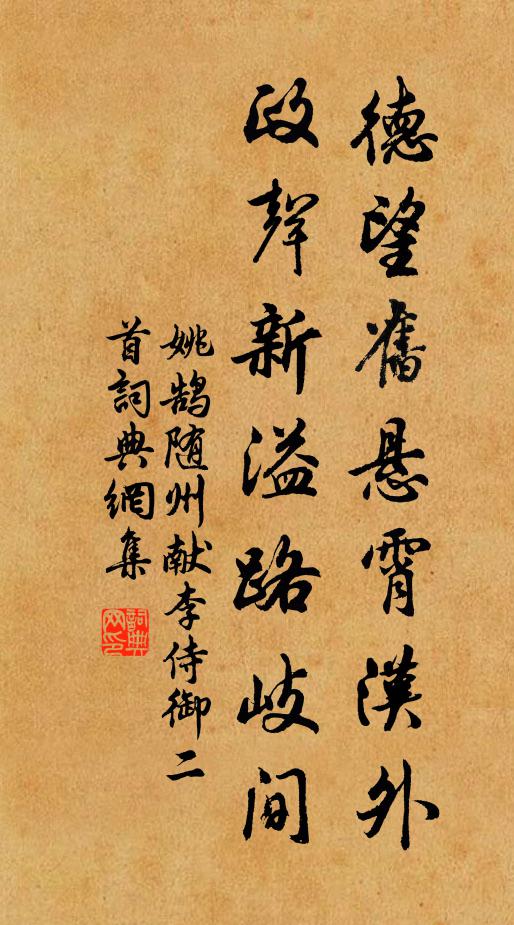 德望舊悬霄漢外
政聲新溢路岐间
姚鹄随州献李侍御二
首詞典網集
詞典
网印